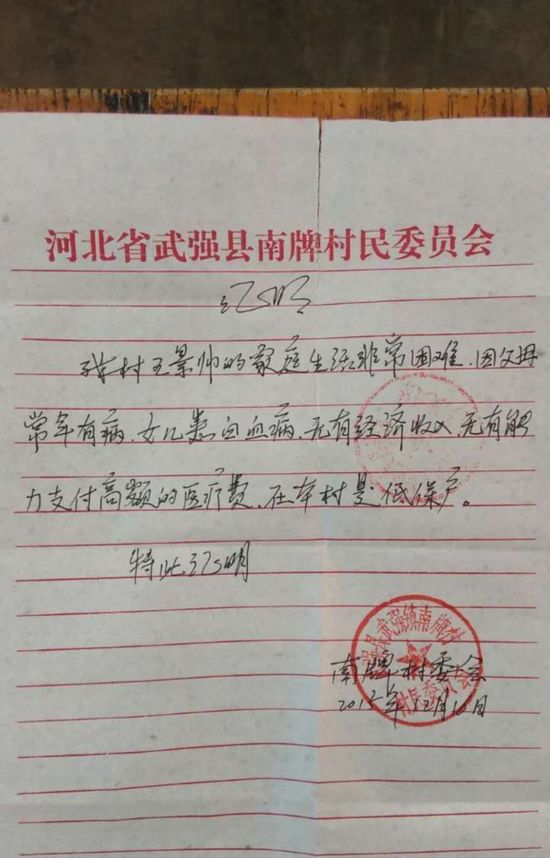 河北省武强县南牌村民委员会
证明
我村王景帅的家庭生活非常困难、因父母
常年有病、女儿患白血病、无有经济收入、无有能
力支付高额的医疗费、在本村是低保户。
特此证明
武强镇南牌村
村民委员会
南牌村委会
2015年12月16日